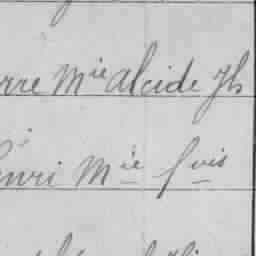 erre Mie Alcide Jh
enri Mie fois